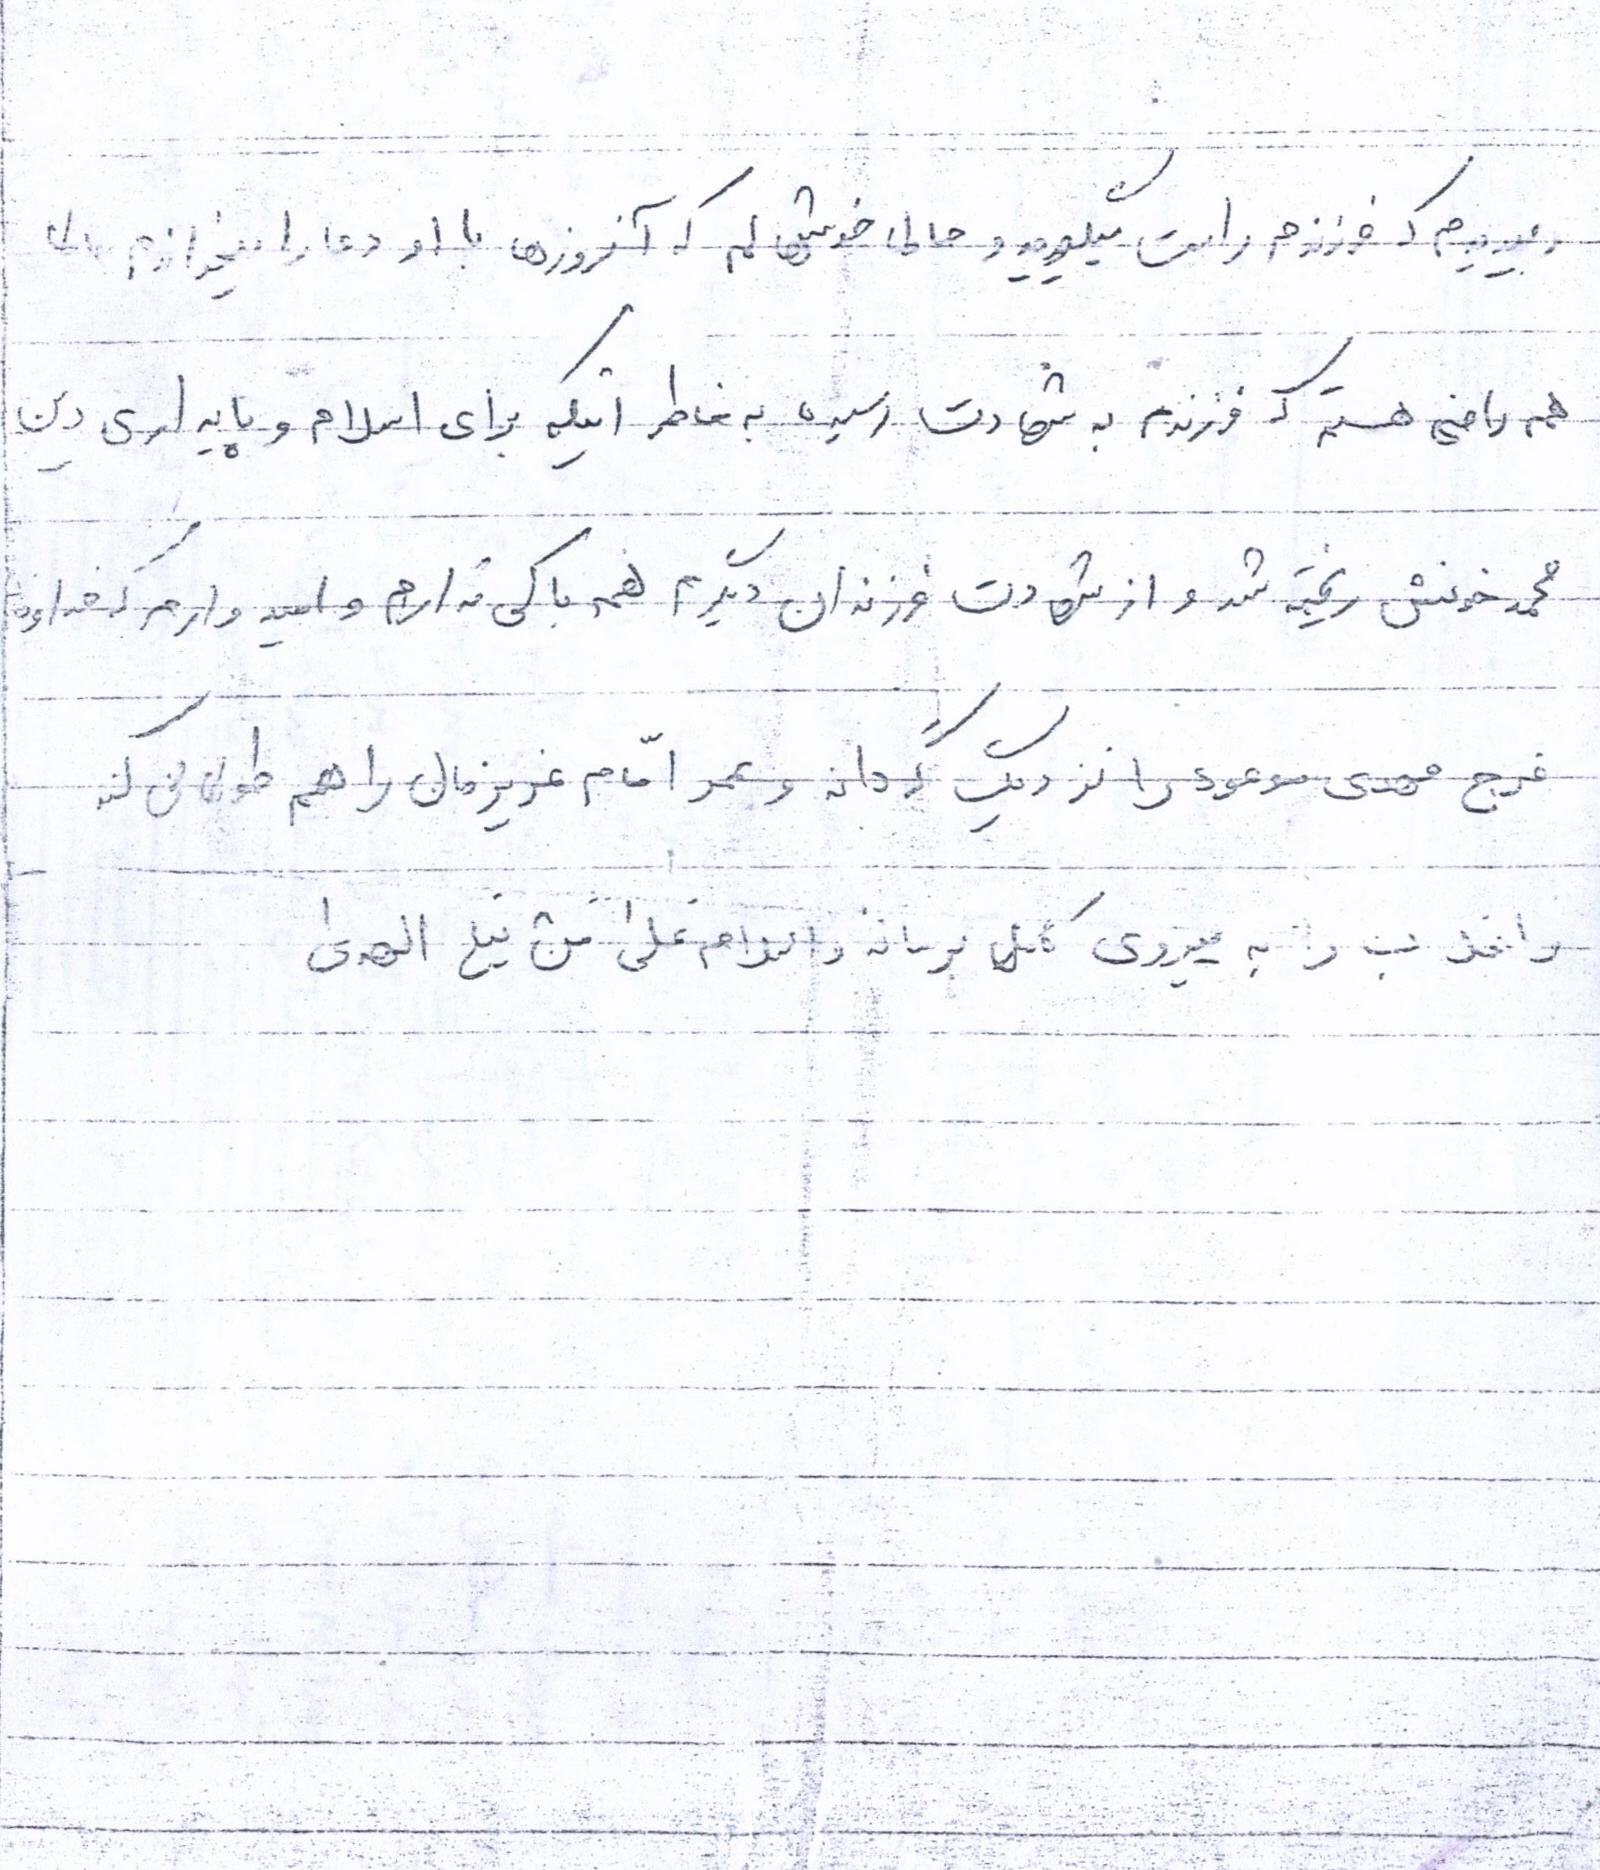 و میدیدم که فرزندم راست میگوید و حالا خوشحالم که آنروزها با او دعا را میخواندم حالا
هم راضی هستم که فرزندم به شهادت رسیده به خاطر اینکه برای اسلام و پایداری دین
محمد خونش ریخته شد و از شهادت فرزندان دیگرم هم باکی ندارم و امیدوارم که خداوند
فرج مهدی موعود را نزدیک گرداند و عمر امّام عزیزمان را هم طولانی کند
و انقلاب را به پیروزی کامل برساند والسلام علی من تبع الهدی